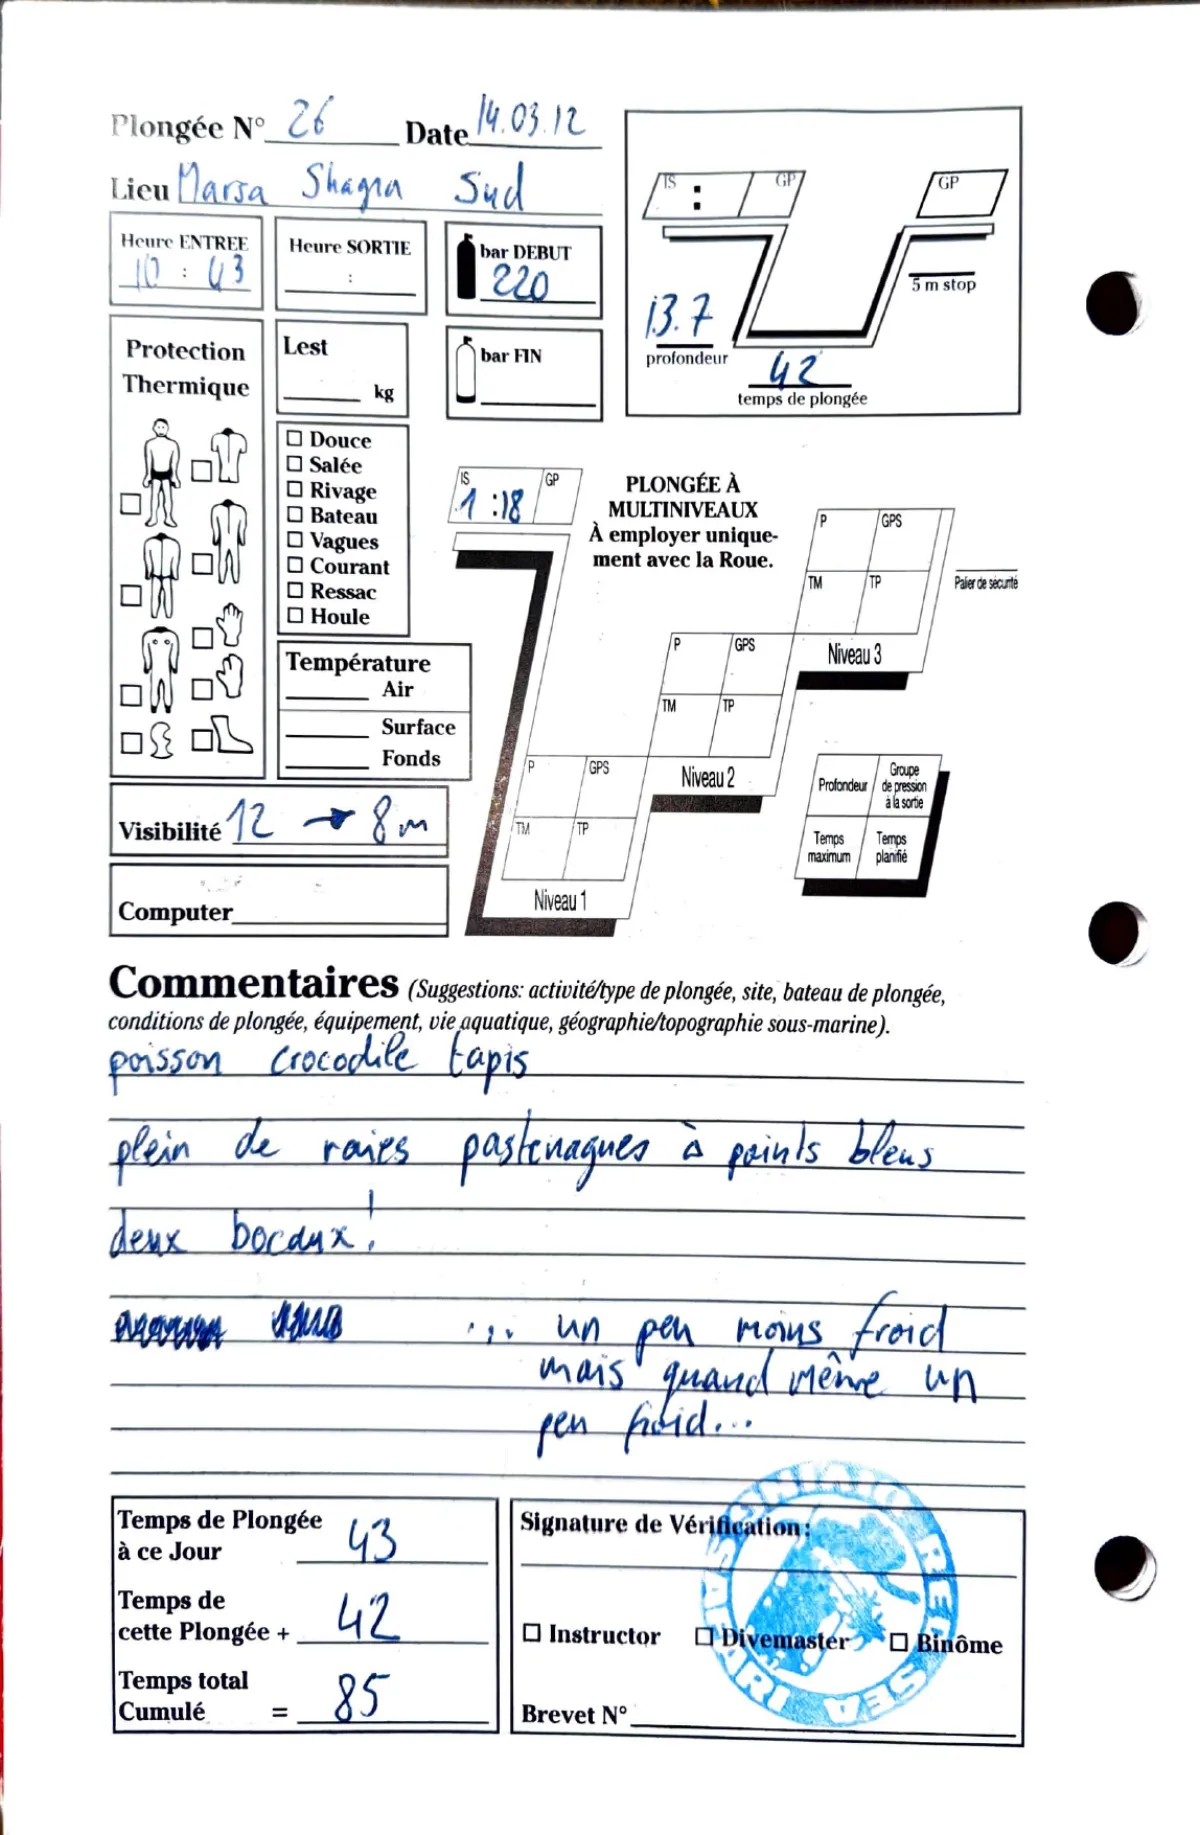 Plongée N° 26 Date 14.03.12
Lieu Marsa Shagra Sud
Heure ENTREE
10 : 43
Heure SORTIE
:
bar DEBUT
220
bar FIN
IS : GP
GP
5 m stop
13.7
profondeur
42
temps de plongée
Protection
Thermique
Lest
kg
Douce
Salée
Rivage
Bateau
Vagues
Courant
Ressac
Houle
Température
Air
Surface
Fonds
Visibilité 12 → 8 m
Computer
IS GP
1 :18
PLONGÉE À
MULTINIVEAUX
À employer unique-
ment avec la Roue.
P GPS
TM TP
Niveau 3
Palier de sécurité
P GPS
TM TP
Niveau 2
P GPS
TM TP
Niveau 1
Profondeur
Groupe
de pression
à la sortie
Temps
maximum
Temps
planifié
Commentaires (Suggestions: activité/type de plongée, site, bateau de plongée,
conditions de plongée, équipement, vie aquatique, géographie/topographie sous-marine).
poisson crocodile tapis
plein de raies pastenagues à points bleus
deux bocaux !
... un peu moins froid
mais quand même un
peu froid...
Temps de Plongée
à ce Jour 43
Temps de
cette Plongée + 42
Temps total
Cumulé = 85
Signature de Vérification:
Instructor Divemaster Binôme
Brevet N°
DIVING RED SEA SAFARI